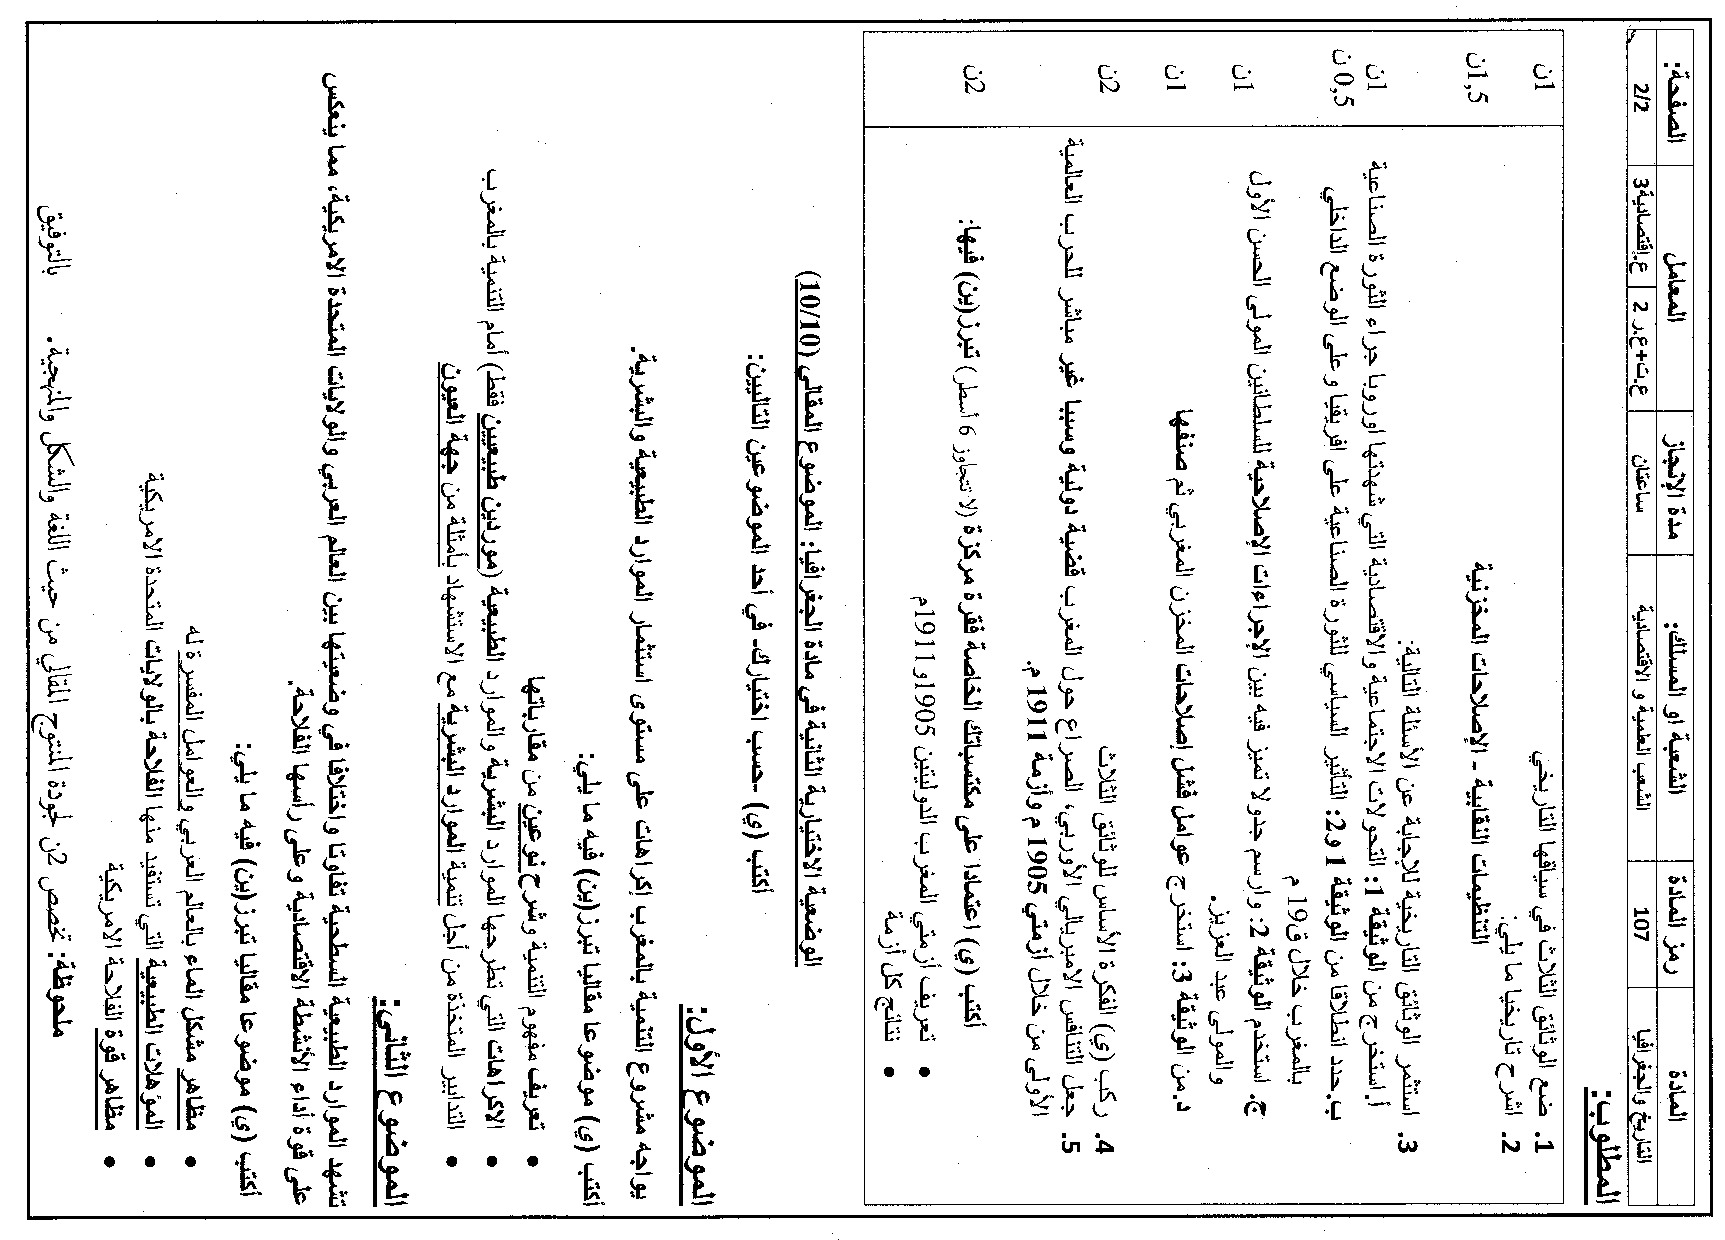 المادة رمز المادة الشعبة او المسلك: مدة الإنجاز المعامل الصفحة:
التاريخ والجغرافيا 107 الشعب العلمية و الاقتصادية ساعتان ع.ت+ع.ر 2 ع.إقتصادية3 2/2
المطلوب:
1. ضع الوثائق الثلاث في سياقها التاريخي 1ن
2. اشرح تاريخيا ما يلي:
التنظيمات النقابية ـ الإصلاحات المخزنية 1,5ن
3. استثمر الوثائق التاريخية للإجابة عن الأسئلة التالية:
أ. استخرج من الوثيقة 1: التحولات الاجتماعية والاقتصادية التي شهدتها اوروبا جراء الثورة الصناعية 1ن
ب. حدد انطلاقا من الوثيقة 1 و2: التأثير السياسي للثورة الصناعية على افريقيا وعلى الوضع الداخلي 0,5 ن
بالمغرب خلال ق19 م
ج. استخدم الوثيقة 2: وارسم جدولا تميز فيه بين الإجراءات الإصلاحية للسلطانين المولى الحسن الأول 1ن
والمولى عبد العزيز.
د. من الوثيقة 3: استخرج عوامل فشل إصلاحات المخزن المغربي ثم صنفها 1ن
4. ركب (ي) الفكرة الأساس للوثائق الثلاث 2ن
5. جعل التنافس الامبريالي الأوربي، الصراع حول المغرب قضية دولية وسببا غير مباشر للحرب العالمية
الأولى من خلال أزمتي 1905 م وأزمة 1911 م.
أكتب (ي) اعتمادا على مكتسباتك الخاصة فقرة مركزة (لا تتجاوز 6 أسطر) تبرز(ين) فيها: 2ن
• تعريف أزمتي المغرب الدوليتين 1905 و1911م
• نتائج كل أزمة
الوضعية الاختيارية الثانية في مادة الجغرافيا: الموضوع المقالي (10/10)
أكتب (ي) -حسب اختيارك- في أحد الموضوعين التاليين:
الموضوع الأول:
يواجه مشروع التنمية بالمغرب إكراهات على مستوى استثمار الموارد الطبيعية والبشرية.
أكتب (ي) موضوعا مقاليا تبرز(ين) فيه ما يلي:
• تعريف مفهوم التنمية وشرح نوعين من مقارباتها
• الاكراهات التي تطرحها الموارد البشرية والموارد الطبيعية (موردين طبيعيين فقط) أمام التنمية بالمغرب
• التدابير المتخذة من أجل تنمية الموارد البشرية مع الاستشهاد بأمثلة من جهة العيون
الموضوع الثاني:
تشهد الموارد الطبيعية السطحية تفاوتا واختلافا في وضعيتها بين العالم العربي والولايات المتحدة الامريكية، مما ينعكس
على قوة أداء الأنشطة الاقتصادية وعلى رأسها الفلاحة.
أكتب (ي) موضوعا مقاليا تبرز(ين) فيه ما يلي:
• مظاهر مشكل الماء بالعالم العربي والعوامل المفسرة له
• المؤهلات الطبيعية التي تستفيد منها الفلاحة بالولايات المتحدة الامريكية
• مظاهر قوة الفلاحة الامريكية
ملحوظة: تخصص 2ن لجودة المنتوج المقالي من حيث اللغة والشكل والمنهجية. بالتوفيق